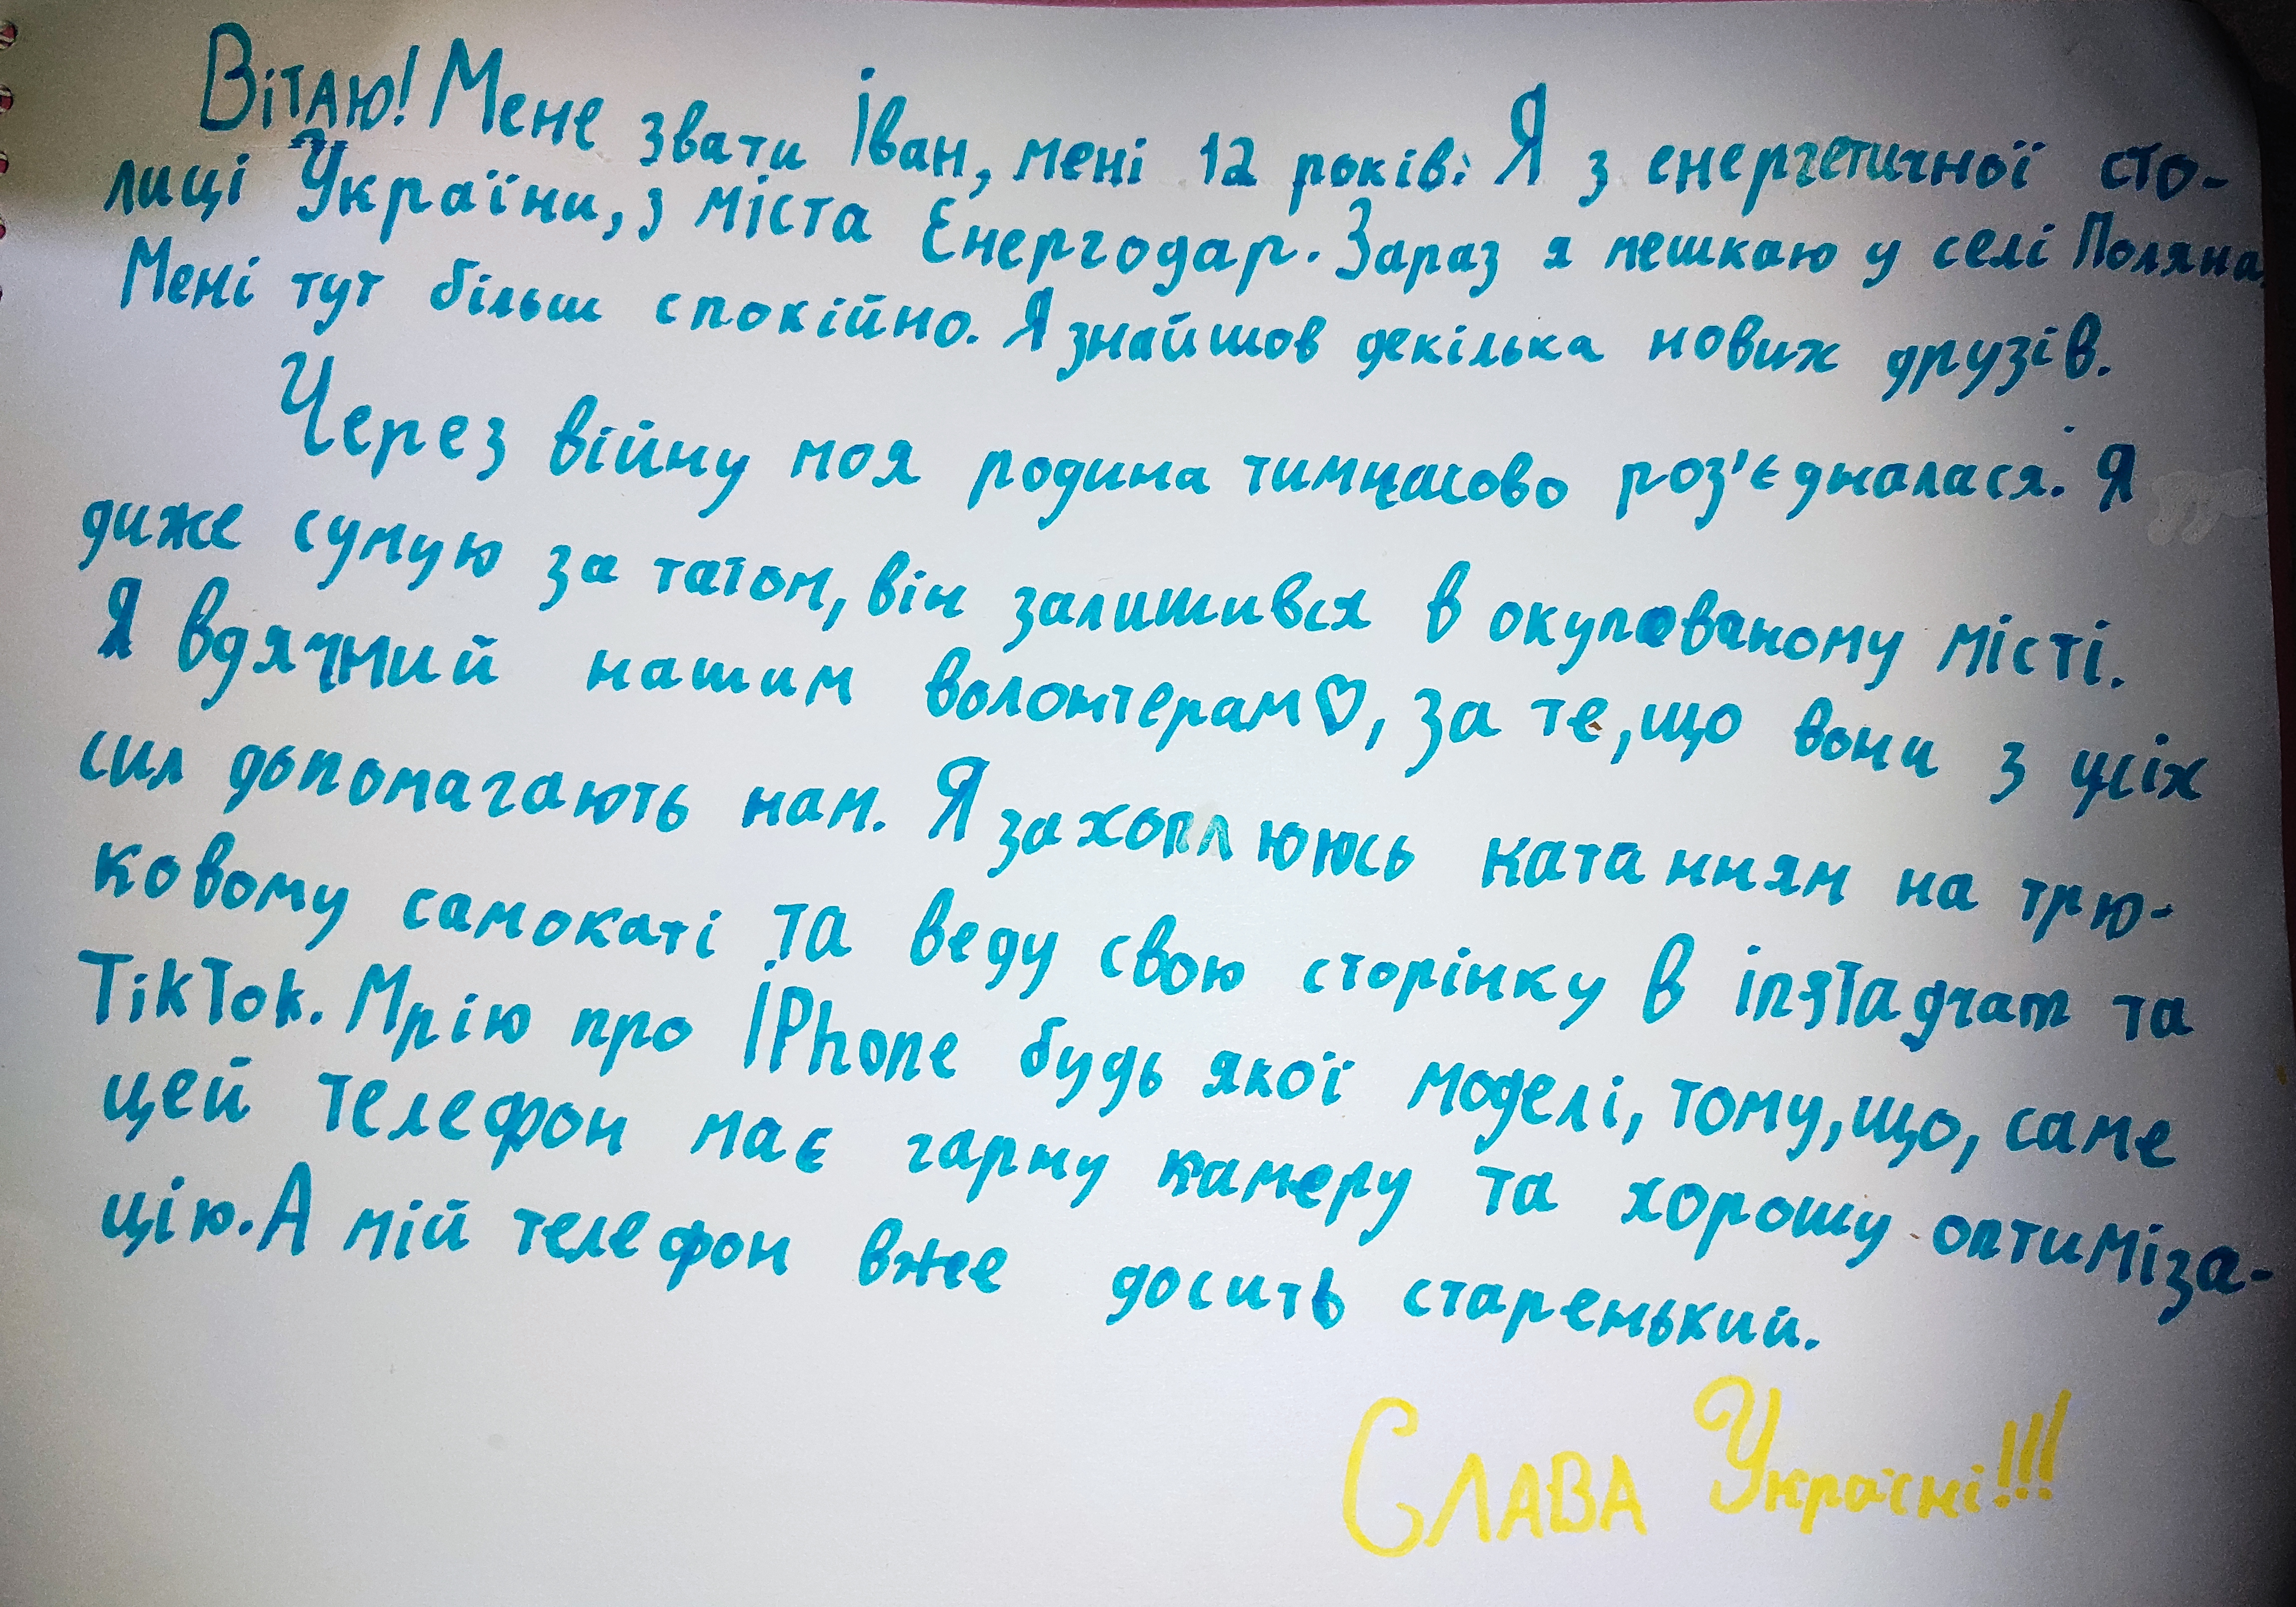 Вітаю! Мене звати Іван, мені 12 років. Я з енергетичної сто-
лиці України, з міста Енергодар. Зараз я мешкаю у селі Поляна.
Мені тут більш спокійно. Я знайшов декілька нових друзів.
Через війну моя родина тимчасово роз'єдналася. Я
диже сумую за татом, він залишився в окупованому місті.
Я вдячний нашим волонтерам♡, за те, що вони з усіх
сил допомагають нам. Я захоплююсь катанням на трю-
ковому самокаті та веду свою сторінку в instagram та
TikTok. Мрію про iPhone будь якої моделі, тому, що, саме
цей телефон має гарну камеру та хорошу оптиміза-
цію. А мій телефон вже досить старенький.
Слава Україні!!!